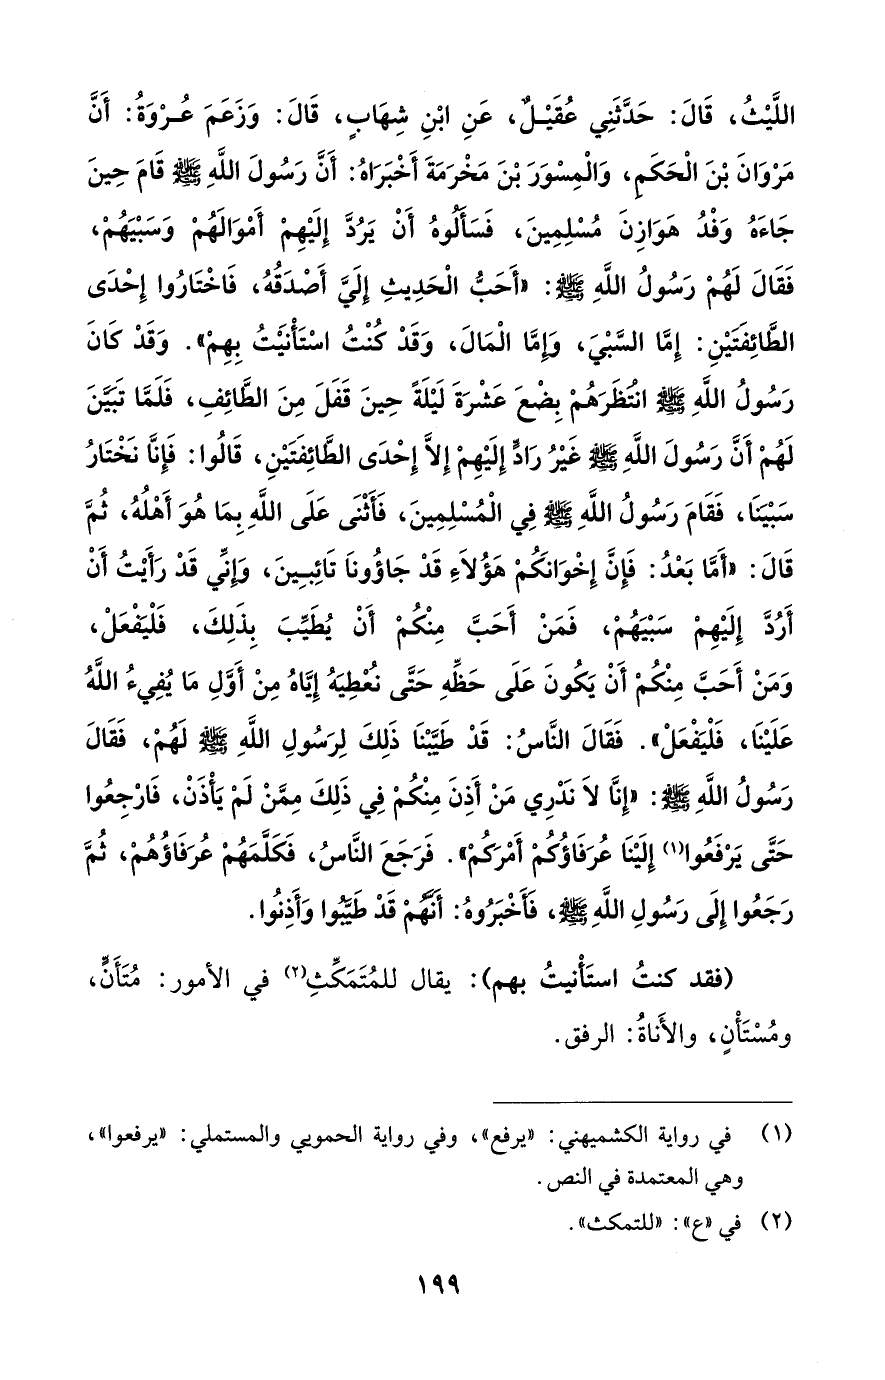 اللَّيْثُ، قَالَ: حَدَّثَنِي عُقَيْلٌ، عَنِ ابْنِ شِهَابٍ، قَالَ: وَزَعَمَ عُرْوَةُ: أَنَّ
مَرْوَانَ بْنَ الْحَكَمِ، وَالْمِسْوَرَ بْنَ مَخْرَمَةَ أَخْبَرَاهُ: أَنَّ رَسُولَ اللَّهِ ﷺ قَامَ حِينَ
جَاءَهُ وَفْدُ هَوَازِنَ مُسْلِمِينَ، فَسَأَلُوهُ أَنْ يَرُدَّ إِلَيْهِمْ أَمْوَالَهُمْ وَسَبْيَهُمْ،
فَقَالَ لَهُمْ رَسُولُ اللَّهِ ﷺ: «أَحَبُّ الْحَدِيثِ إِلَيَّ أَصْدَقُهُ، فَاخْتَارُوا إِحْدَى
الطَّائِفَتَيْنِ: إِمَّا السَّبْيَ، وَإِمَّا الْمَالَ، وَقَدْ كُنْتُ اسْتَأْنَيْتُ بِهِمْ». وَقَدْ كَانَ
رَسُولُ اللَّهِ ﷺ انْتَظَرَهُمْ بِضْعَ عَشْرَةَ لَيْلَةً حِينَ قَفَلَ مِنَ الطَّائِفِ، فَلَمَّا تَبَيَّنَ
لَهُمْ أَنَّ رَسُولَ اللَّهِ ﷺ غَيْرُ رَادٍّ إِلَيْهِمْ إِلاَّ إِحْدَى الطَّائِفَتَيْنِ، قَالُوا: فَإِنَّا نَخْتَارُ
سَبْيَنَا، فَقَامَ رَسُولُ اللَّهِ ﷺ فِي الْمُسْلِمِينَ، فَأَثْنَى عَلَى اللَّهِ بِمَا هُوَ أَهْلُهُ، ثُمَّ
قَالَ: «أَمَّا بَعْدُ: فَإِنَّ إِخْوَانَكُمْ هَؤُلاَءِ قَدْ جَاؤُونَا تَائِبِينَ، وَإِنِّي قَدْ رَأَيْتُ أَنْ
أَرُدَّ إِلَيْهِمْ سَبْيَهُمْ، فَمَنْ أَحَبَّ مِنْكُمْ أَنْ يُطَيِّبَ بِذَلِكَ، فَلْيَفْعَلْ،
وَمَنْ أَحَبَّ مِنْكُمْ أَنْ يَكُونَ عَلَى حَظِّهِ حَتَّى نُعْطِيَهُ إِيَّاهُ مِنْ أَوَّلِ مَا يُفِيءُ اللَّهُ
عَلَيْنَا، فَلْيَفْعَلْ». فَقَالَ النَّاسُ: قَدْ طَيَّبْنَا ذَلِكَ لِرَسُولِ اللَّهِ ﷺ لَهُمْ، فَقَالَ
رَسُولُ اللَّهِ ﷺ: «إِنَّا لاَ نَدْرِي مَنْ أَذِنَ مِنْكُمْ فِي ذَلِكَ مِمَّنْ لَمْ يَأْذَنْ، فَارْجِعُوا
حَتَّى يَرْفَعُوا(١) إِلَيْنَا عُرَفَاؤُكُمْ أَمْرَكُمْ». فَرَجَعَ النَّاسُ، فَكَلَّمَهُمْ عُرَفَاؤُهُمْ، ثُمَّ
رَجَعُوا إِلَى رَسُولِ اللَّهِ ﷺ، فَأَخْبَرُوهُ: أَنَّهُمْ قَدْ طَيَّبُوا وَأَذِنُوا.
(فقد كنتُ استَأْنيتُ بهم): يقال للمُتَمَكِّثِ(٢) في الأمور: مُتَأَنٍّ،
ومُسْتَأْنٍ، والأَناةُ: الرفق.
(١) في رواية الكشميهني: «يرفع»، وفي رواية الحمويي والمستملي: «يرفعوا»،
وهي المعتمدة في النص.
(٢) في «ع»: «للتمكث».
١٩٩